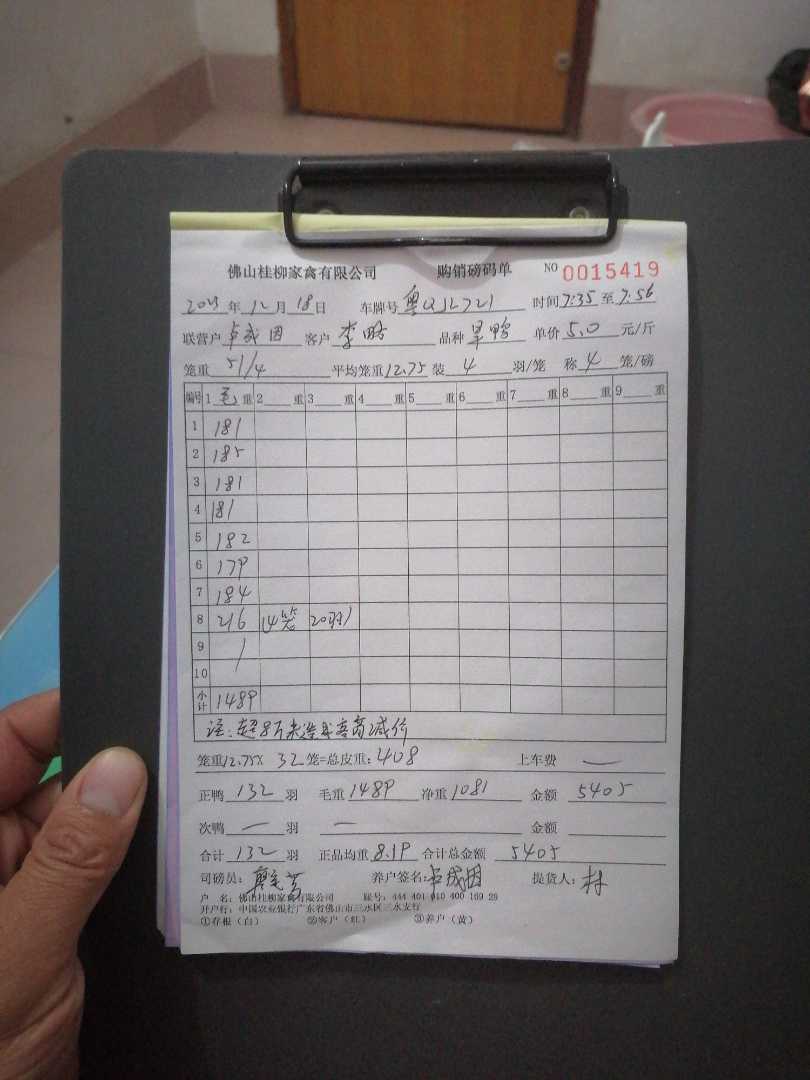 佛山桂柳家禽有限公司 购销磅码单 NO 0015419
2023 年 12 月 18 日 车牌号 粤QJL721 时间 7:35 至 7:56
联营户 卢成因 客户 李鹏 品种 旱鸭 单价 5.0 元/斤
笼重 51/4 平均笼重 12.75 装 4 羽/笼 称 4 笼/磅
编号 1 毛 重 2 重 3 重 4 重 5 重 6 重 7 重 8 重 9 重
1 181
2 185
3 181
4 181
5 182
6 179
7 184
8 216 (4笼 20羽)
9
10
小计 1489
注: 超8斤未
笼重 12.75 X 32 笼=总皮重: 408 上车费 —
正鸭 132 羽 毛重 1489 净重 1081 金额 5405
次鸭 — 羽 — 金额
合计 132 羽 正品均重 8.19 合计总金额 5405
司磅员: 养户签名: 卢成因 提货人: 村
户 名: 佛山桂柳家禽有限公司 账号: 444 401 010 400 169 28
开户行: 中国农业银行广东省佛山市三水区三水支行
①存根(白) ②客户(红) ③养户(黄)